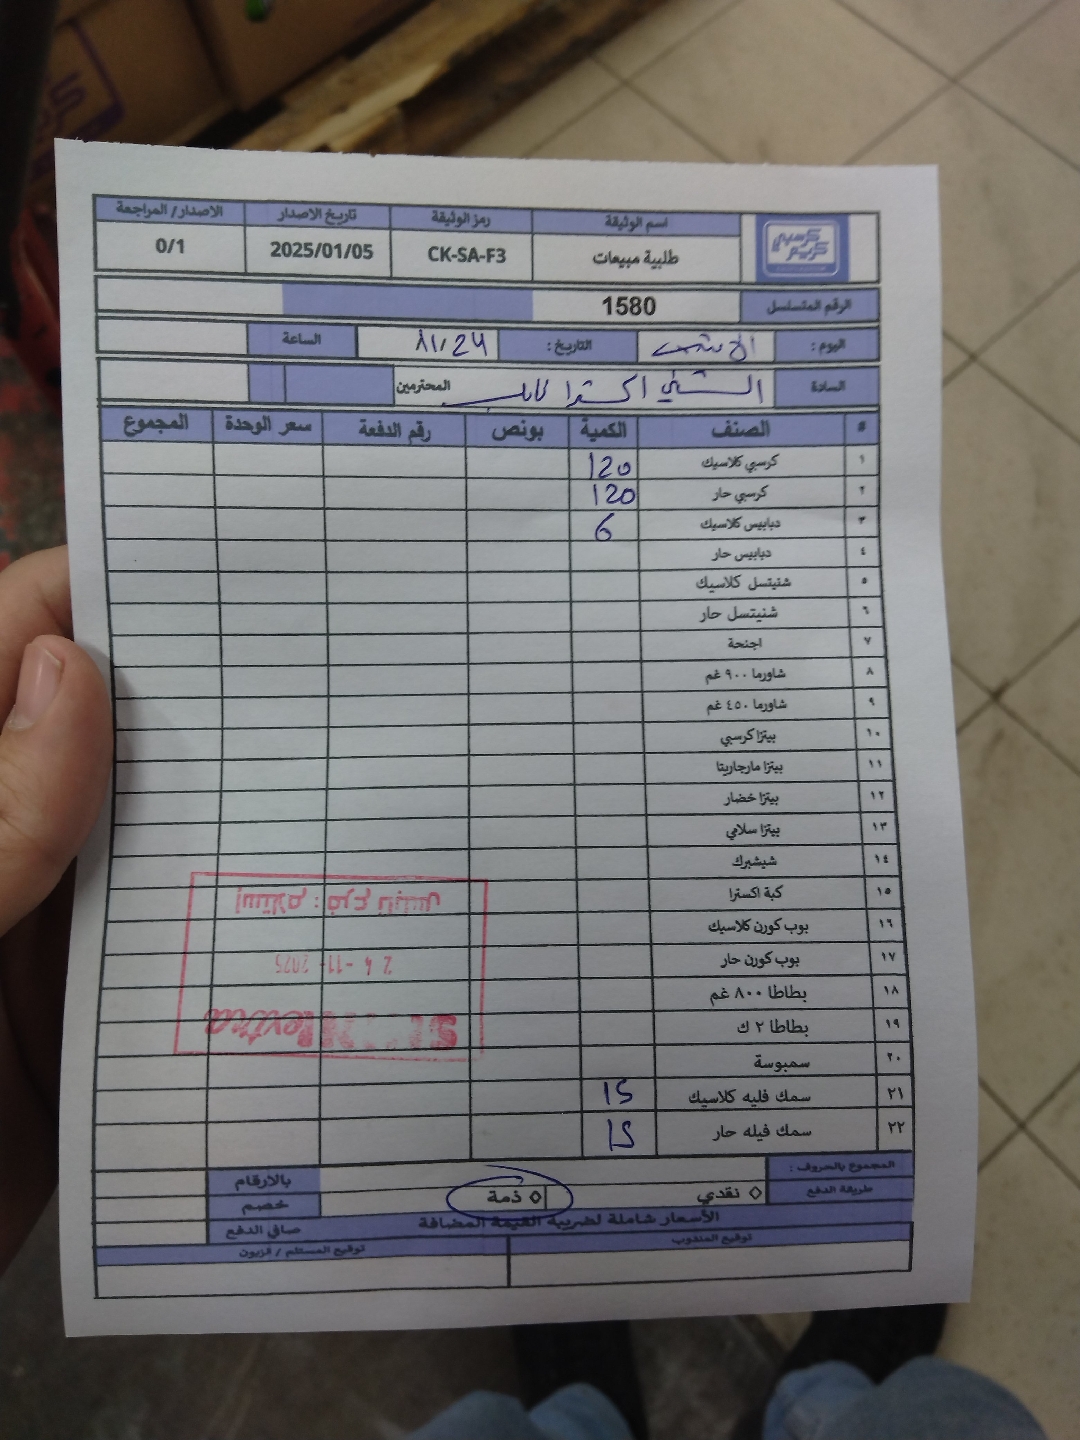 اسم الوثيقة رمز الوثيقة تاريخ الاصدار الاصدار/ المراجعة
كرسبي كريم طلبية مبيعات CK-SA-F3 2025/01/05 0/1
الرقم المتسلسل 1580
اليوم : الاثنين التاريخ : 11/24 الساعة
السادة الشني اكسترا نابلس المحترمين
# الصنف الكمية بونص رقم الدفعة سعر الوحدة المجموع
١ كرسبي كلاسيك 120
٢ كرسبي حار 120
٣ دبابيس كلاسيك 6
٤ دبابيس حار
٥ شنيتسل كلاسيك
٦ شنيتسل حار
٧ اجنحة
٨ شاورما ٩٠٠ غم
٩ شاورما ٤٥٠ غم
١٠ بيتزا كرسبي
١١ بيتزا مارجاريتا
١٢ بيتزا خضار
١٣ بيتزا سلامي
١٤ شيشبرك
١٥ كبة اكسترا
١٦ بوب كورن كلاسيك
١٧ بوب كورن حار
١٨ بطاطا ٨٠٠ غم
١٩ بطاطا ٢ ك
٢٠ سمبوسة
٢١ سمك فليه كلاسيك 15
٢٢ سمك فيله حار 15
إستلام : فرع نابلس
24 -11- 2025
extra
المجموع بالحروف : بالارقام
طريقة الدفع ◊ نقدي ◊ ذمة خصم
الأسعار شاملة لضريبة القيمة المضافة صافي الدفع
توقيع المندوب توقيع المستلم / الزبون